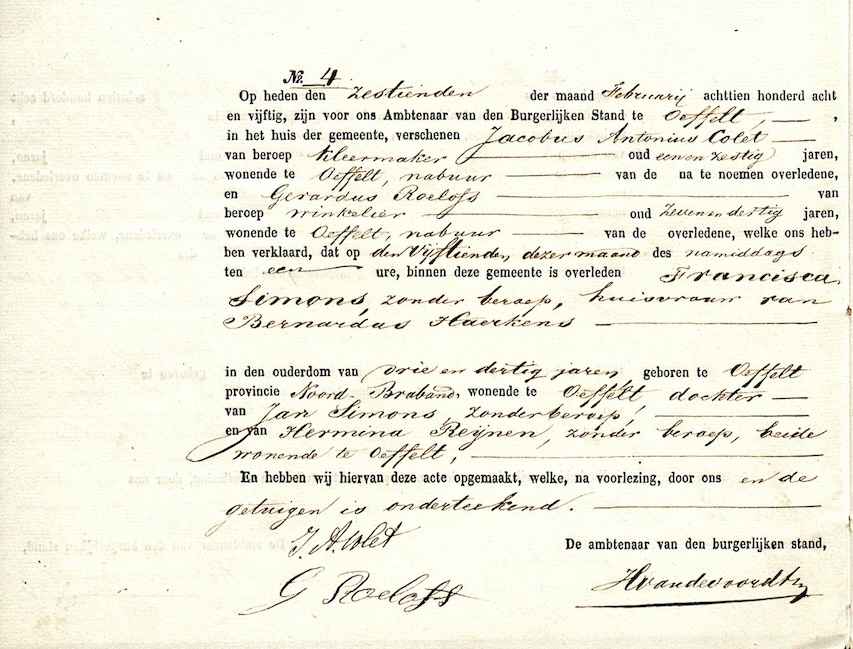 No. 4
Op heden den zestienden der maand Februarij achttien honderd acht
en vijftig, zijn voor ons Ambtenaar van den Burgerlijken Stand te Oeffelt, — ,
in het huis der gemeente, verschenen Jacobus Antonius Colet —
van beroep kleermaker — oud een en zestig jaren,
wonende te Oeffelt, nabuur — van de na te noemen overledene,
en Gerardus Roelofs — van
beroep winkelier — oud zeven en dertig jaren,
wonende te Oeffelt, nabuur — van de overledene, welke ons heb-
ben verklaard, dat op den Vijftienden dezer maand des namiddags
ten een — ure, binnen deze gemeente is overleden Francisca
Simons, zonder beroep, huisvrouw van
Bernardus Haerkens —
in den ouderdom van drie en dertig jaren, geboren te Oeffelt
provincie Noord-Braband, wonende te Oeffelt dochter —
van Jan Simons, zonder beroep, —
en van Hermina Reijnen, zonder beroep, beide
wonende te Oeffelt, —
En hebben wij hiervan deze acte opgemaakt, welke, na voorlezing, door ons en de
getuigen is onderteekend. —
J. A. Colet
De ambtenaar van den burgerlijken stand,
G Roelofs
HvandeVoordt